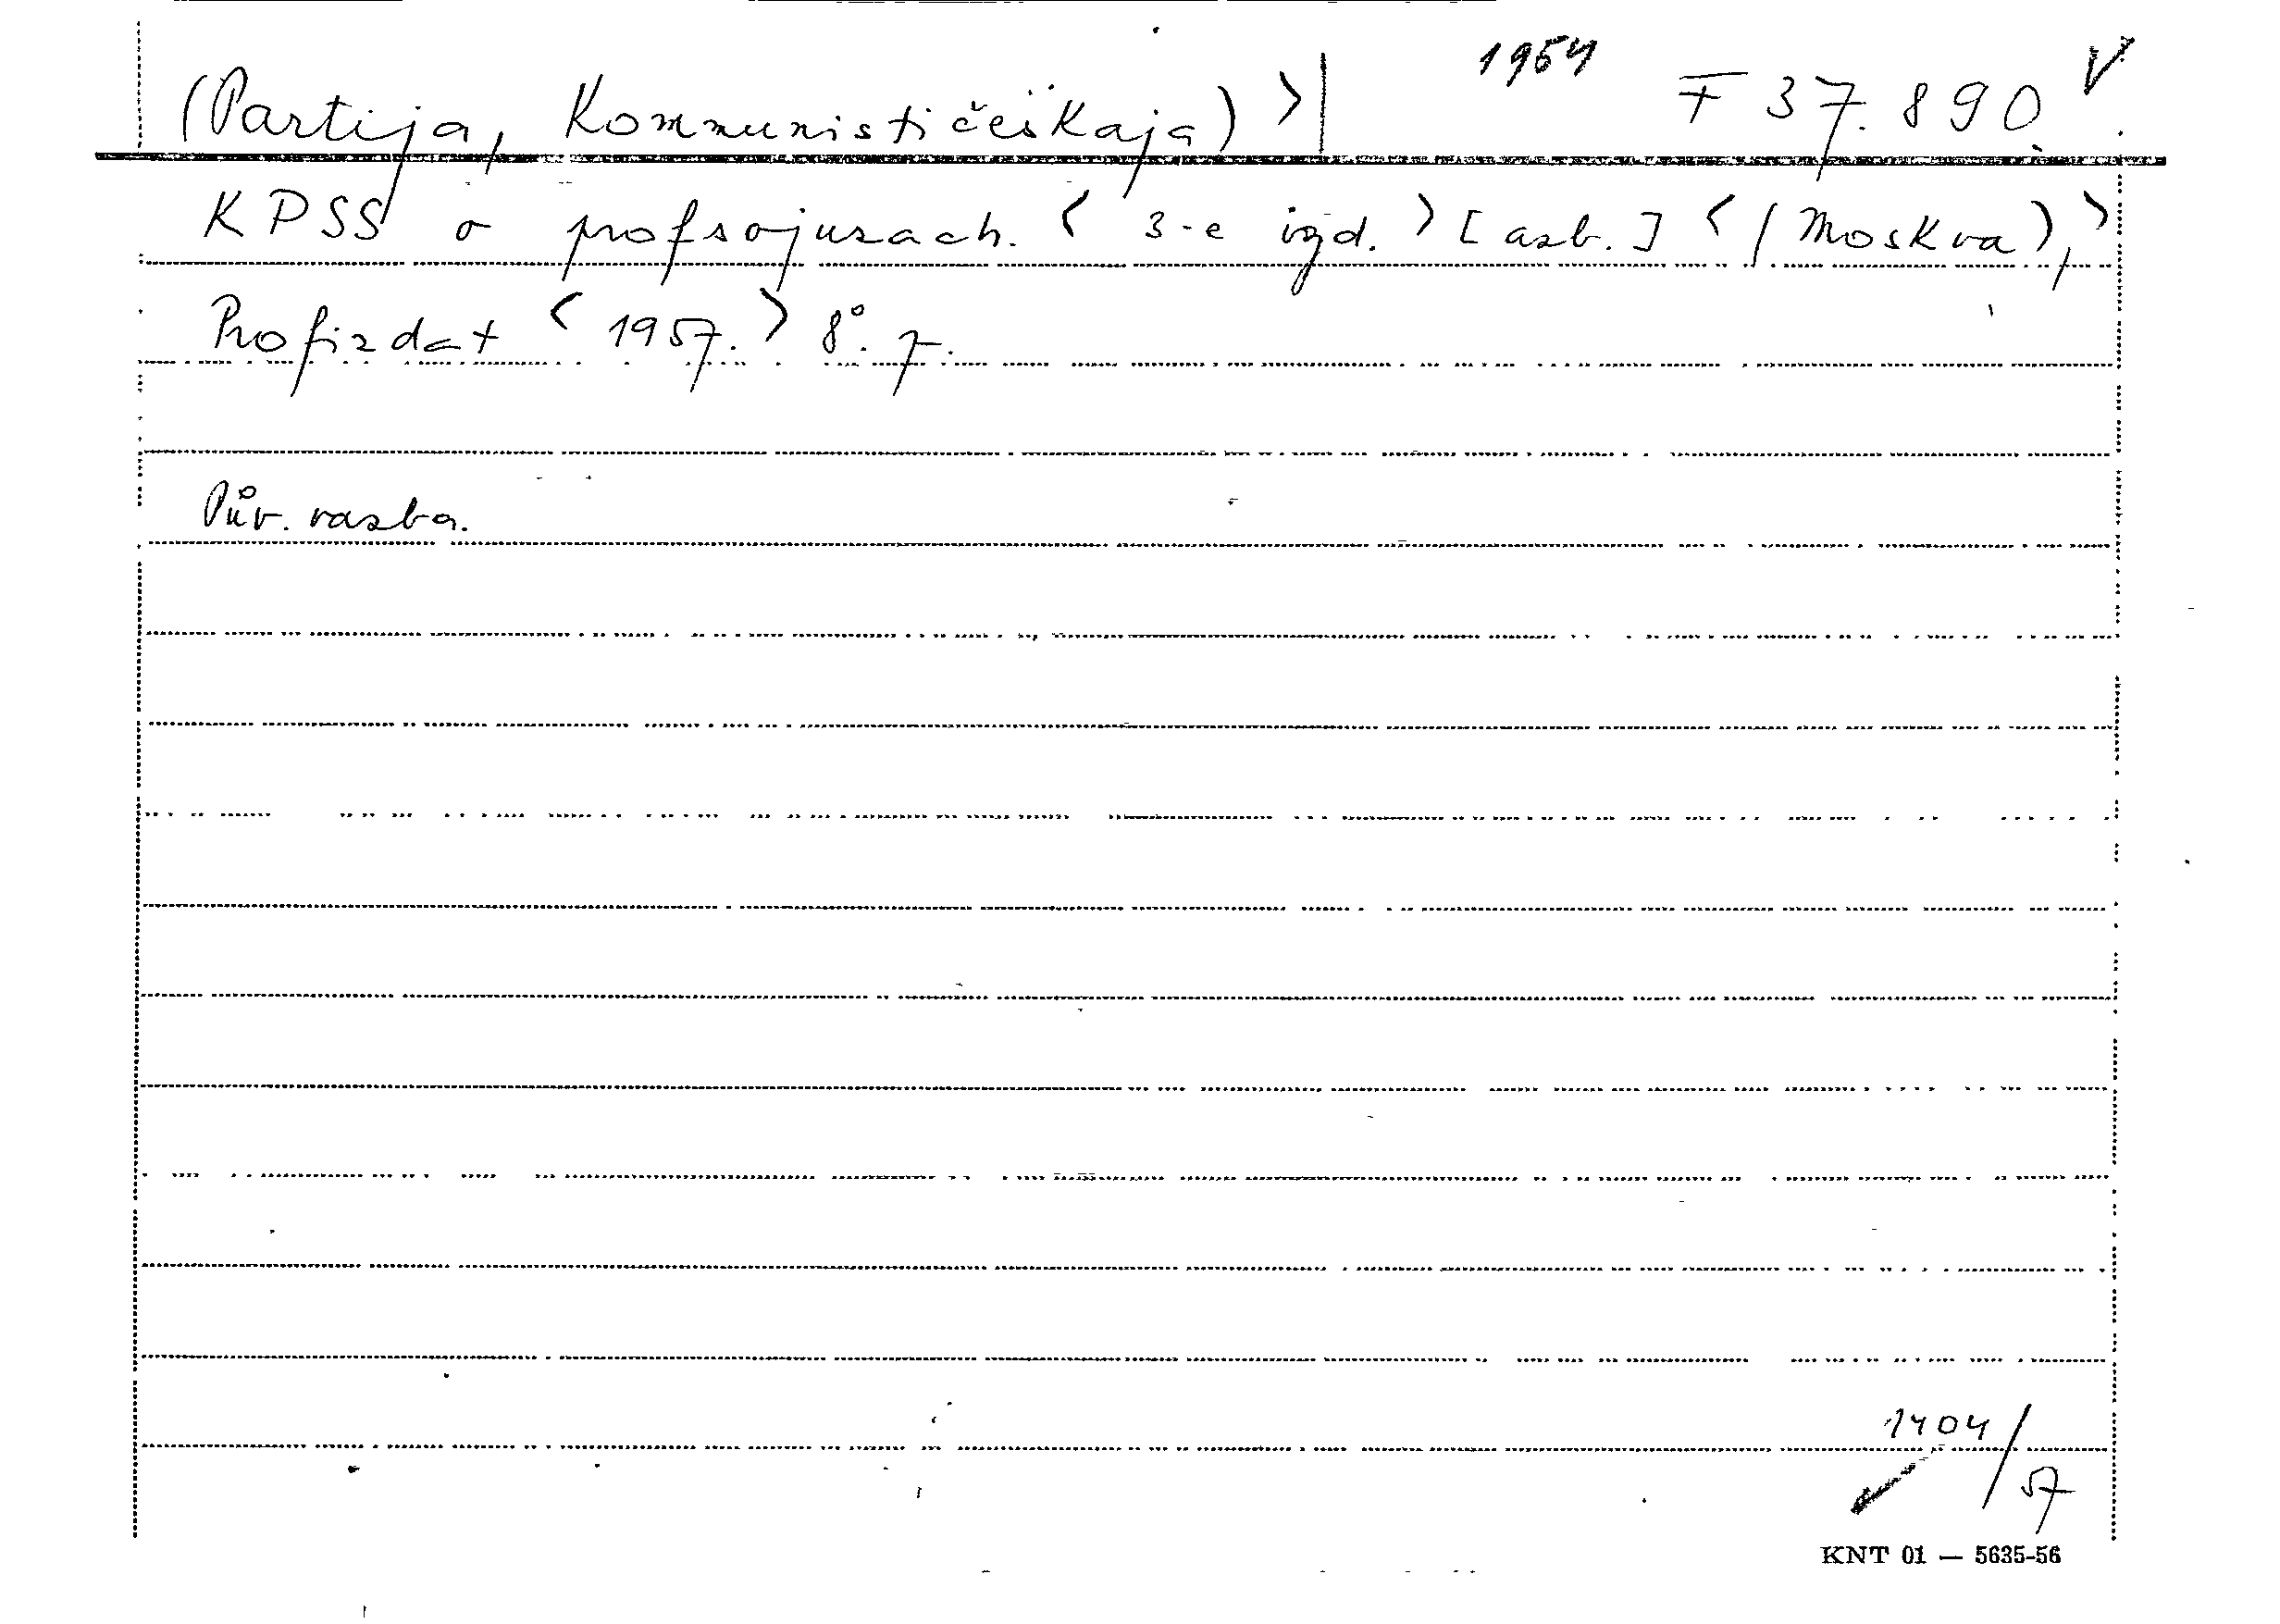 (Partija, Kommunističeskaja) >| 1954 F 37.890. V
KPSS o profsojuzach. < 3-e izd. > [azb.] < (Moskva), >
Profizdat < 1957. > 8°. 7.
Pův. vazba.
1404/57
KNT 01 — 5635-56